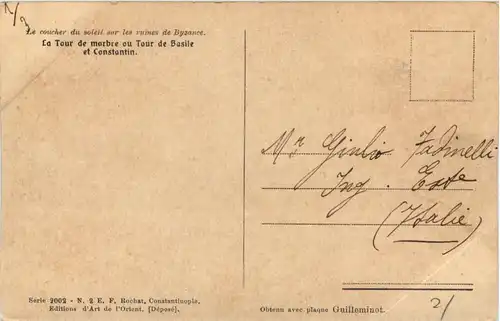 Le coucher du soleil sur les ruines de Byzance.
La Tour de marbre ou Tour de Basile
et Constantin.
Mr. Giulio Fadinelli
Ing. Este
(Italie)
Serie 2002 - N. 2 E. F. Rochat, Constantinople,
Editions d'Art de l'Orient. [Déposé].
Obtenu avec plaque Guilleminot.
2/